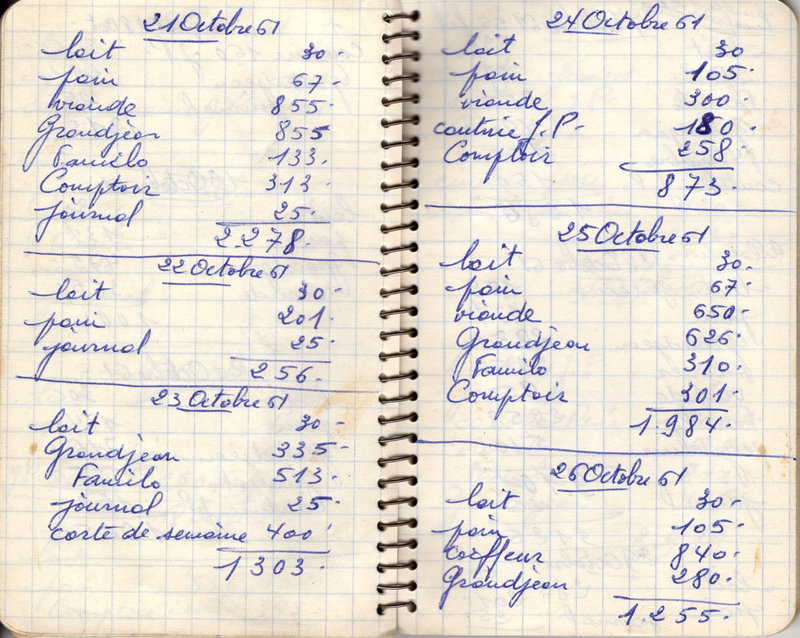 21 Octobre 61
lait 30-
pain 67-
viande 855-
Grandjean 855
Familo 133.
Comptoir 313-
journal 25.
2.278.
22 Octobre 61
lait 30-
pain 201-
journal 25-
256.
23 Octobre 61
lait 30-
Grandjean 335-
Familo 513-
journal 25-
carte de semaine 400
1303.
24 Octobre 61
lait 30
pain 105.
viande 300.
couture J.P- 180.
Comptoir 258.
873.
25 Octobre 61
lait 30.
pain 67-
viande 650-
Grandjean 626-
Familo 310.
Comptoir 301.
1.984.
26 Octobre 61
lait 30-
pain 105.
coiffeur 840.
Grandjean 280.
1.255.